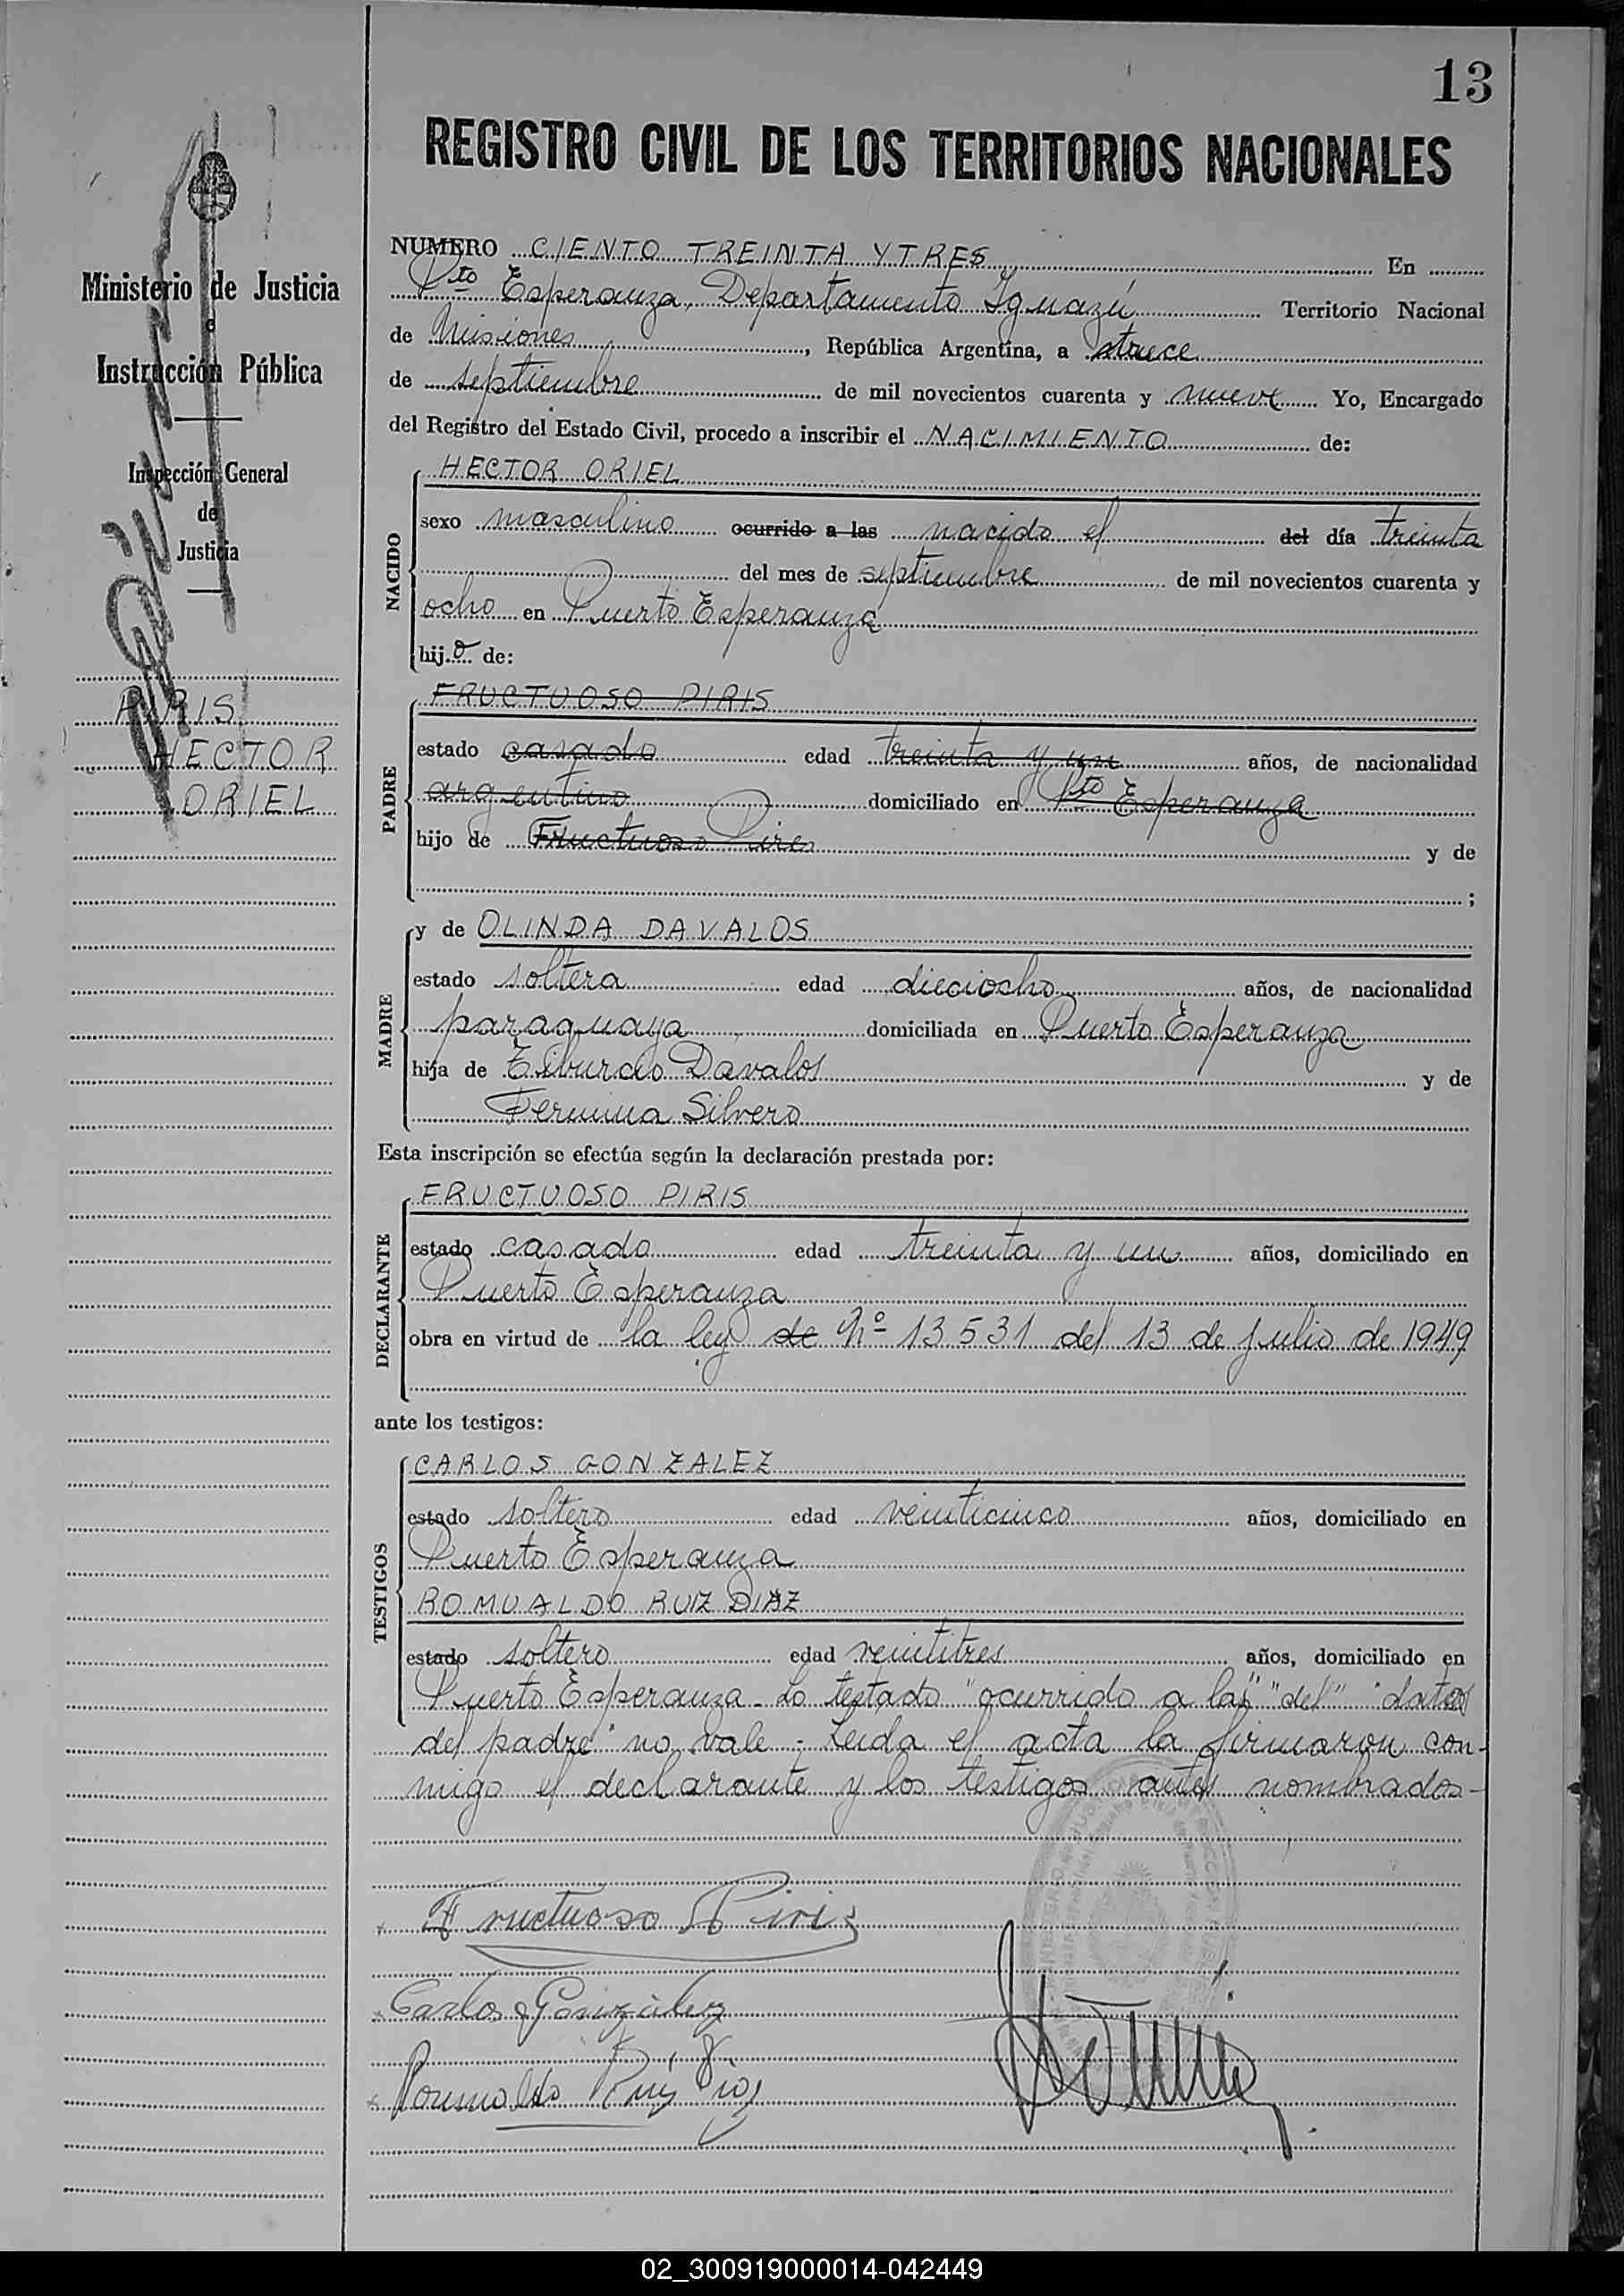 13
REGISTRO CIVIL DE LOS TERRITORIOS NACIONALES
Ministerio de Justicia
e
Instrucción Pública
Inspección General
de
Justicia
PIRIS
HECTOR
ORIEL
NUMERO CIENTO TREINTA Y TRES En
Pto Esperanza, Departamento Iguazú Territorio Nacional
de Misiones, República Argentina, a trece
de septiembre de mil novecientos cuarenta y nueve Yo, Encargado
del Registro del Estado Civil, procedo a inscribir el NACIMIENTO de:
NACIDO
HECTOR ORIEL
sexo masculino ocurrido a las nacido el del día treinta
del mes de septiembre de mil novecientos cuarenta y
ocho en Puerto Esperanza
hijo de:
PADRE
FRUCTUOSO PIRIS
estado casado edad treinta y un años, de nacionalidad
argentino domiciliado en Pto Esperanza
hijo de Fructuoso Pires y de
;
MADRE
y de OLINDA DAVALOS
estado soltera edad dieciocho años, de nacionalidad
paraguaya domiciliada en Puerto Esperanza
hija de Tiburcio Davalos y de
Fermina Silvero
Esta inscripción se efectúa según la declaración prestada por:
DECLARANTE
FRUCTUOSO PIRIS
estado casado edad treinta y un años, domiciliado en
Puerto Esperanza
obra en virtud de la ley de Nº 13531 del 13 de julio de 1949
ante los testigos:
TESTIGOS
CARLOS GONZALEZ
estado soltero edad veinticinco años, domiciliado en
Puerto Esperanza
ROMUALDO RUIZ DIAZ
estado soltero edad veintitres años, domiciliado en
Puerto Esperanza - Lo testado "ocurrido a las" "del" "datos
del padre" no vale - Leida el acta la firmaron con-
migo el declarante y los testigos antes nombrados-
Fructuoso Piris
Carlos Gonzalez
Romualdo Ruiz Diaz
02_300919000014-042449